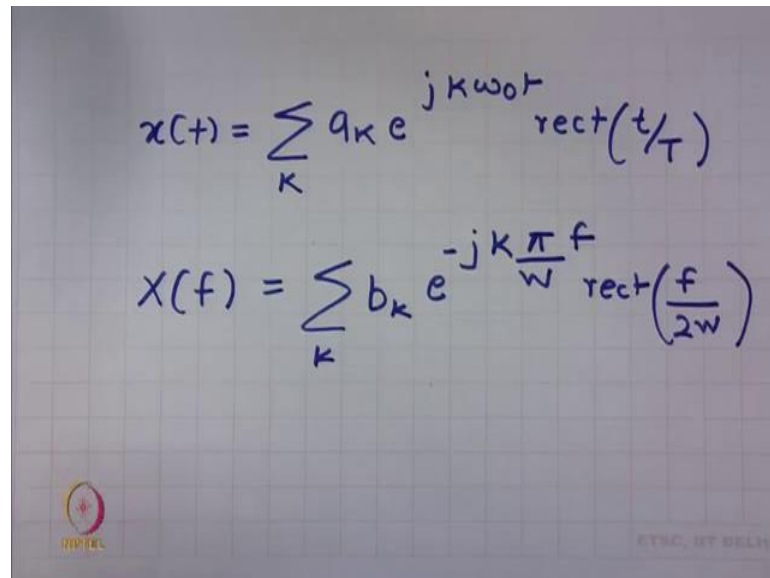 x(t) = ∑_K a_K e^{jKω₀t} rect(t/T)
X(f) = ∑_K b_K e^{-jK\frac{π}{W}f} rect(\frac{f}{2W})
NPTEL
ETSC, IIT DELHI